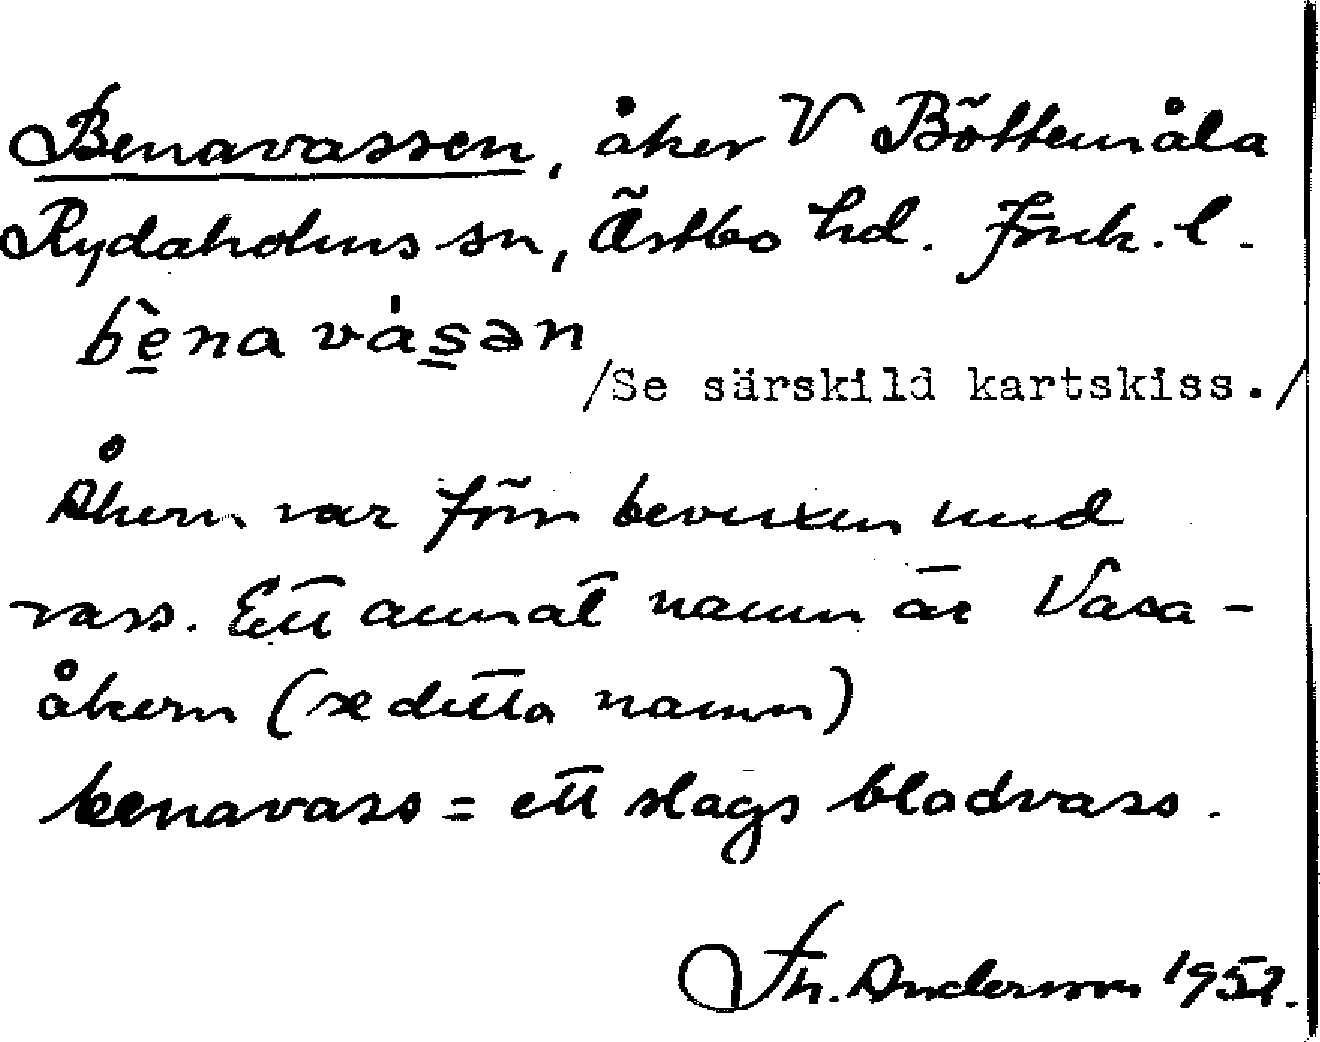 Benavassen, åker V Böttemåla
Rydaholms sn, Östbo hd. Jönk. l.
bèna vásən
/Se särskild kartskiss./
Åkern var förr bevuxen med
vass. Ett annat namn är Vasa-
åkern (se detta namn)
benavass = ett slags bladvass.
Th. Anderson 1952.